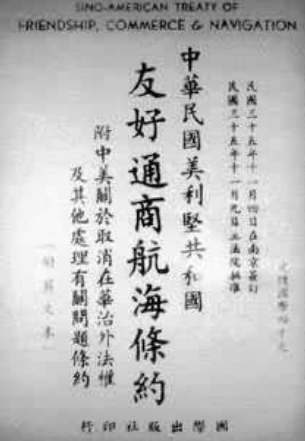 SINO-AMERICAN TREATY OF
FRIENDSHIP, COMMERCE & NAVIGATION
民國三十五年十一月四日在南京簽訂
民國三十五年十一月九日立法院批准
中華民國美利堅共和國
友好通商航海條約
附中美關於取消在華治外法權
及其他處理有關問題條約
行印社版出際國